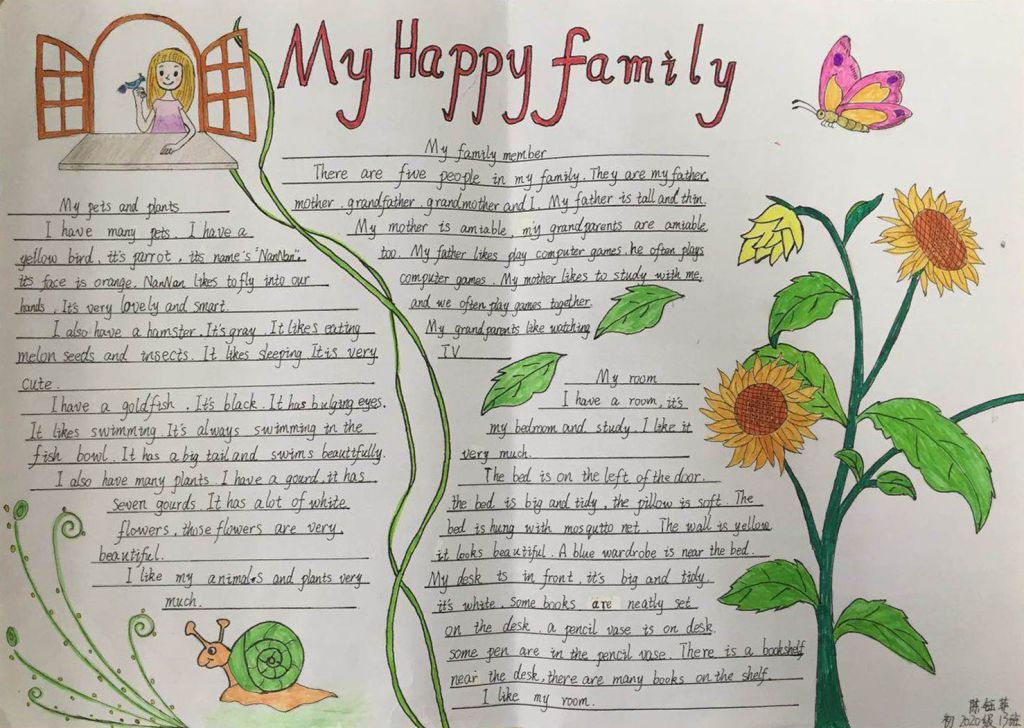 My Happy family
My family member
There are five people in my family. They are my father,
mother, grandfather, grandmother and I. My father is tall and thin.
My mother is amiable, my grandparents are amiable
too. My father likes play computer games, he often plays
computer games. My mother likes to study with me,
and we often play games together.
My grandparents like watching
TV
My pets and plants
I have many pets. I have a
yellow bird, it's parrot, its name's "NanNan",
its face is orange. NanNan likes to fly into our
hands. It's very lovely and smart.
I also have a hamster. It's gray. It likes eating
melon seeds and insects. It likes sleeping. It is very
cute.
I have a goldfish. It's black. It has bulging eyes.
It likes swimming. It's always swimming in the
fish bowl. It has a big tail and swims beautifully.
I also have many plants. I have a gourd, it has
seven gourds. It has a lot of white
flowers, those flowers are very
beautiful.
I like my animals and plants very
much.
My room
I have a room, it's
my bedroom and study. I like it
very much.
The bed is on the left of the door.
the bed is big and tidy, the pillow is soft. The
bed is hung with mosqutto net. The wall is yellow
it looks beautiful. A blue wardrobe is near the bed.
My desk is in front, it's big and tidy.
it's white. some books are neatly set
on the desk. a pencil vase is on desk.
some pen are in the pencil vase. There is a bookshelf
near the desk, there are many books on the shelf.
I like my room.
初2020级13班